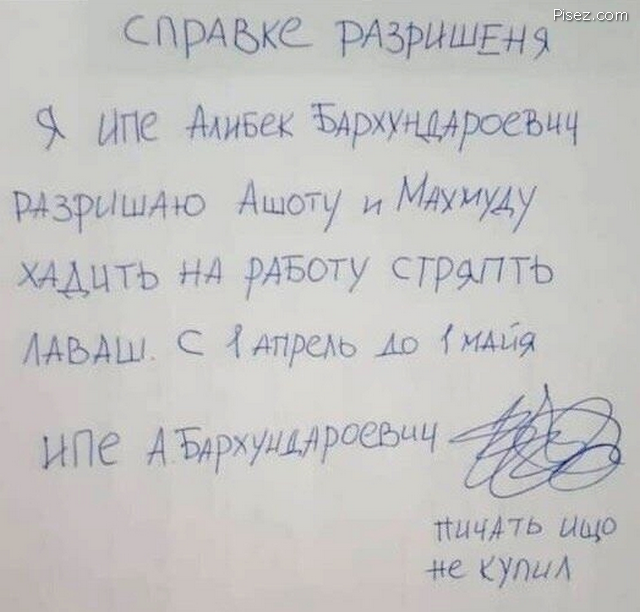 Pisez.com
СПРАВКЕ РАЗРИШЕНЯ
Я ИПЕ АЛИБЕК БАРХУНДАРОЕВИЧ
РАЗРИШАЮ АШОТУ И МАХМУДУ
ХАДИТЬ НА РАБОТУ СТРЯПТЬ
ЛАВАШ. С 1 АПРЕЛЬ ДО 1 МАЙЯ
ИПЕ А.БАРХУНДАРОЕВИЧ
ПИЧАТЬ ИЩО
НЕ КУПИЛ